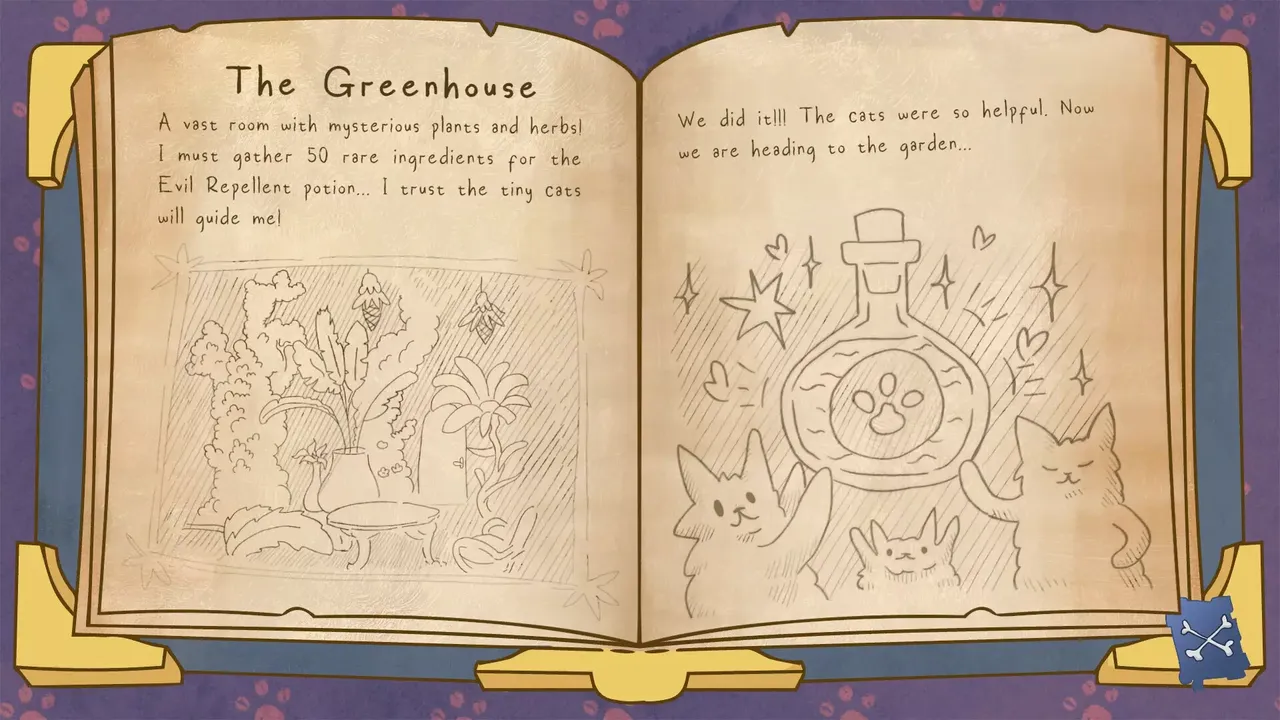 The Greenhouse
A vast room with mysterious plants and herbs!
I must gather 50 rare ingredients for the
Evil Repellent potion... I trust the tiny cats
will guide me!
We did it!!! The cats were so helpful. Now
we are heading to the garden...